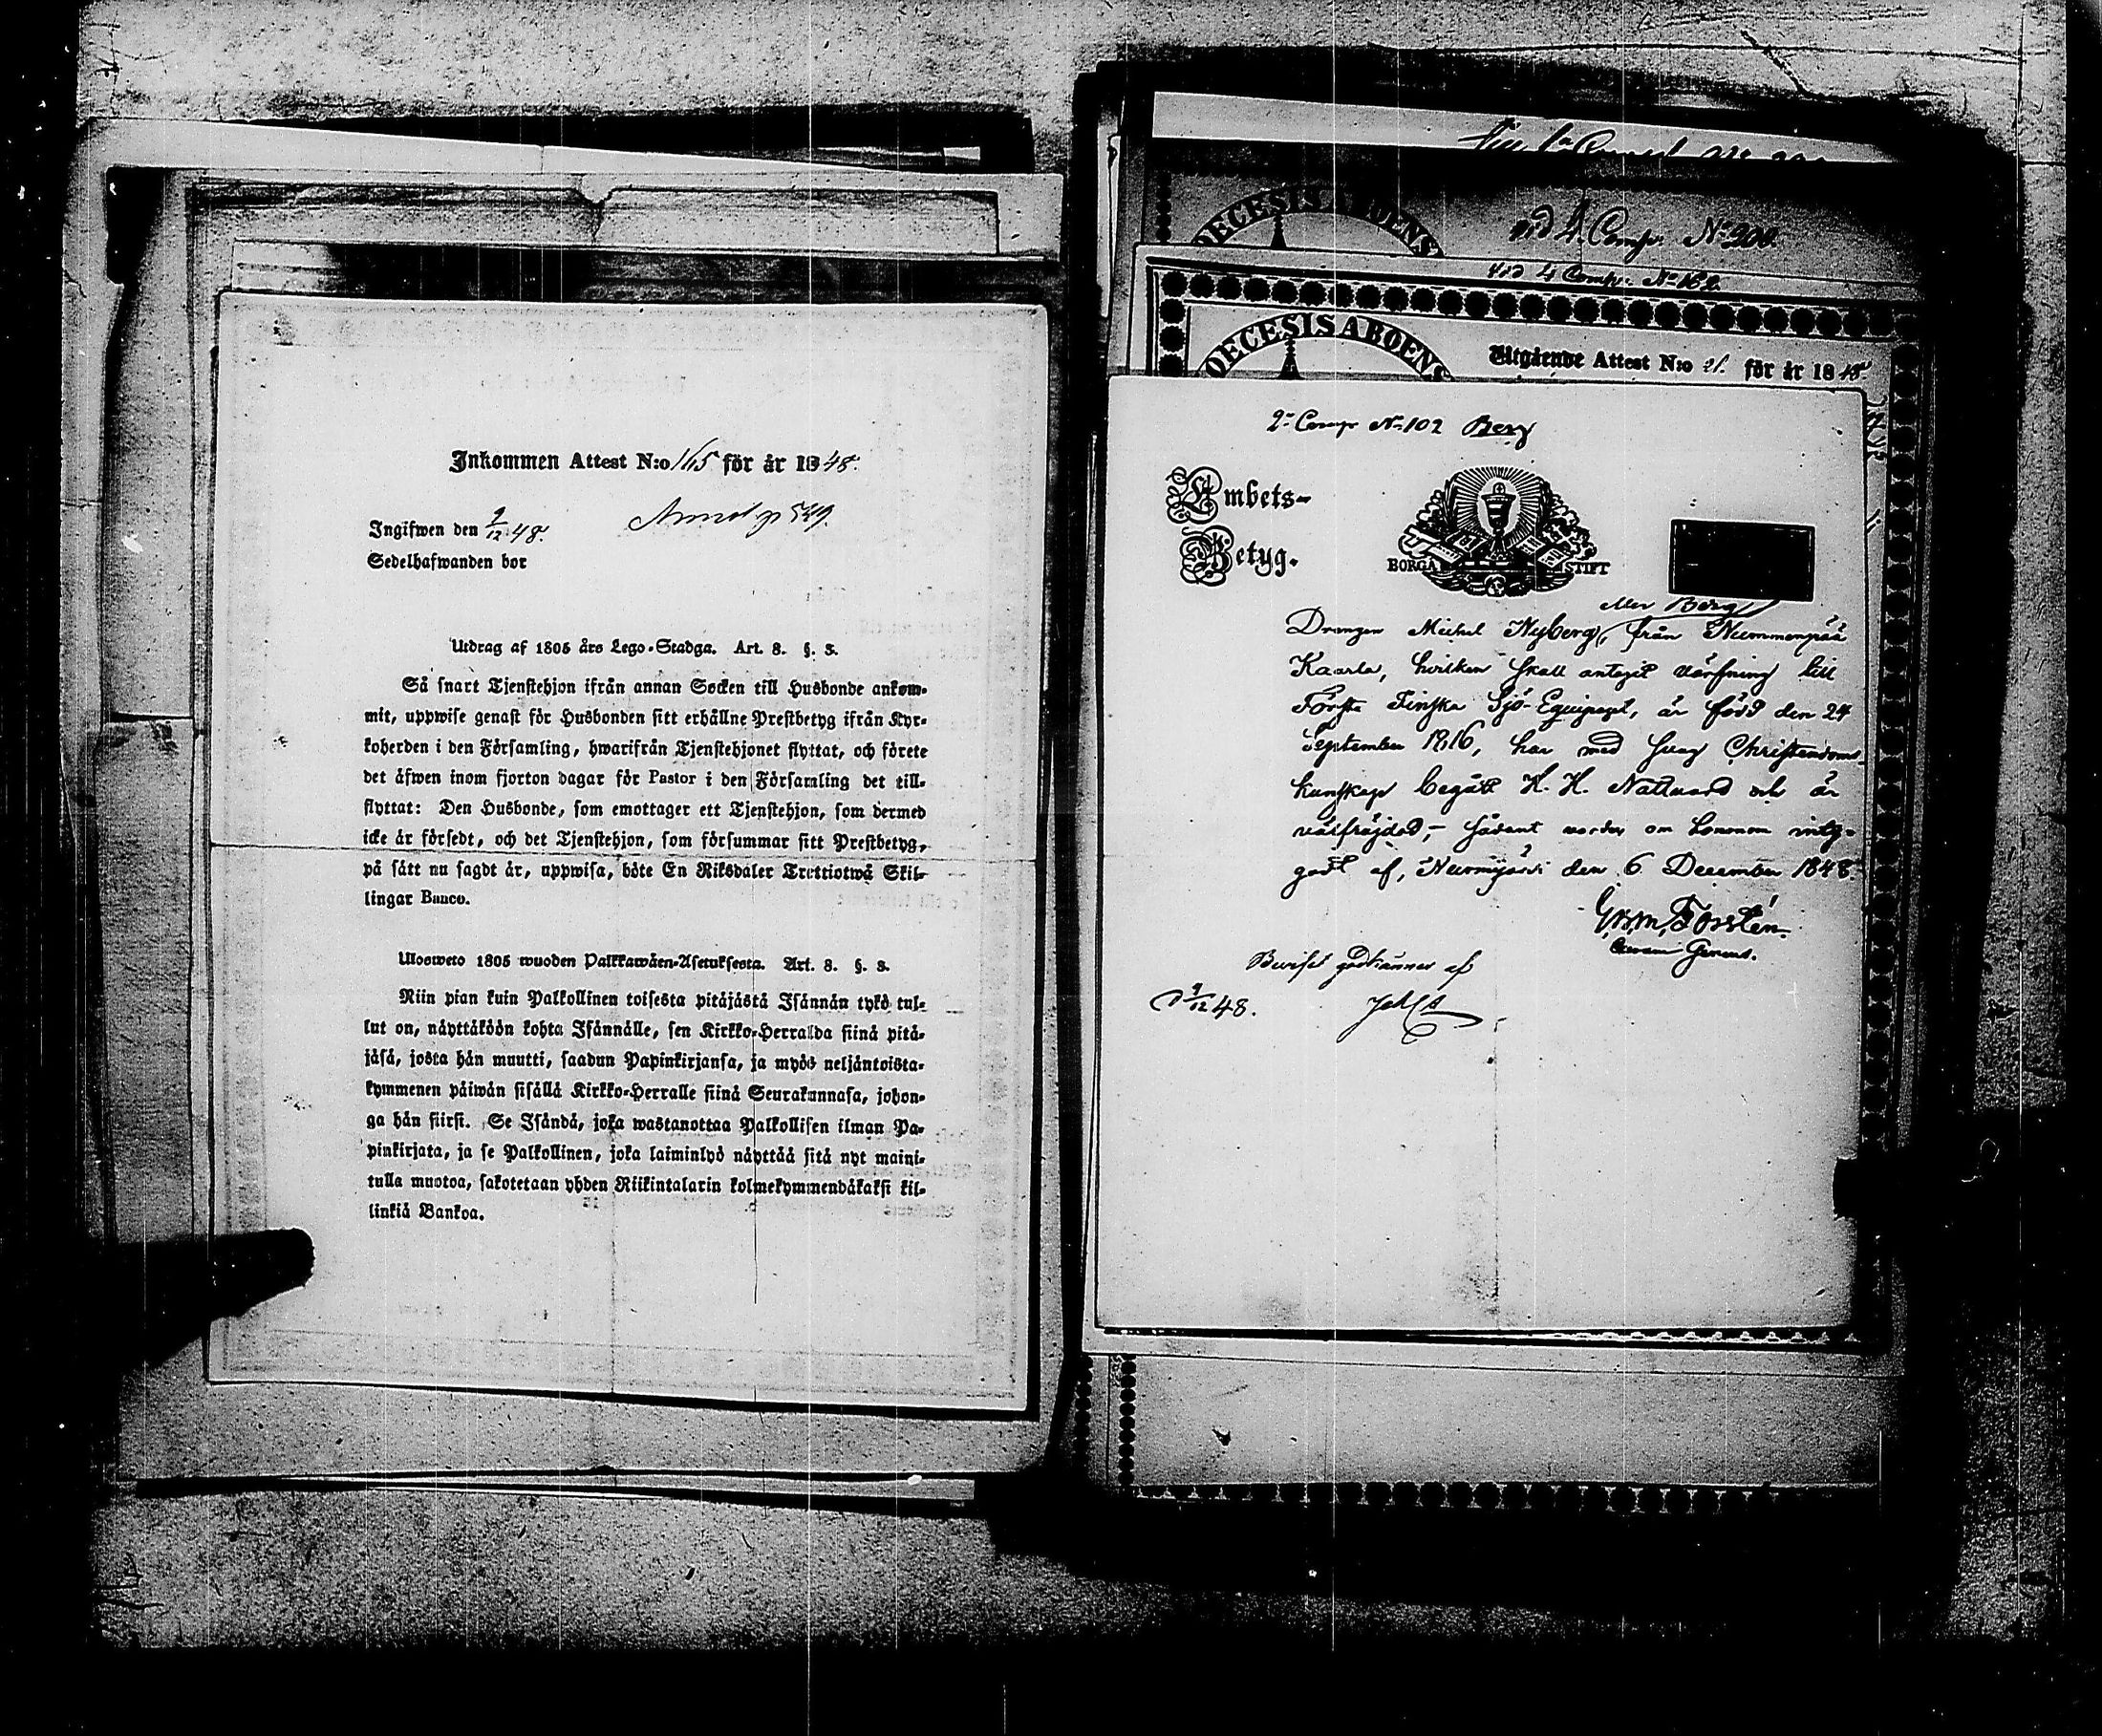 Inkommen Attest N:o 165 för år 1848.
Ingifwen den 9/12 48. Annot p 549.
Sedelhafwanden bor
Utdrag af 1805 års Lego-Stadga. Art. 8. §. 3.
Så snart Tjenstehjon ifrån annan Socken till Husbonde ankom-
mit, uppwise genast för Husbonden sitt erhållne Prestbetyg ifrån Kyr-
koherden i den Församling, hwarifrån Tjenstehjonet flyttat, och förete
det äfwen inom fjorton dagar för Pastor i den Församling det till-
flyttat: Den Husbonde, som emottager ett Tjenstehjon, som dermed
icke är försedt, och det Tjenstehjon, som försummar sitt Prestbetyg,
på sätt nu sagdt är, uppwisa, böte En Riksdaler Trettiotwå Skil-
lingar Banco.
Ulosweto 1805 wuoden Palkkawäen-Asetuksesta. Art. 8. §. 3.
Niin pian kuin Palkollinen toisesta pitäjästä Isännän tykö tul-
lut on, näyttäköön kohta Isännälle, sen Kirkko-Herralda siinä pitä-
jäsä, josta hän muutti, saadun Papinkirjansa, ja myös neljäntoista-
kymmenen päiwän sisällä Kirkko-Herralle siinä Seurakunnasa, johon-
ga hän siirsi. Se Isändä, joka wastanottaa Palkollisen ilman Pa-
pinkirjata, ja se Palkollinen, joka laiminlyö näyttää sitä nyt maini-
tulla muotoa, sakotetaan yhden Riikintalarin kolmekymmendäkaksi kil-
linkiä Bankoa.
DECESIS ABOENS
vid 4 Comp. No 200.
vid 4 Comp. No 162
DECESIS ABOENS
Utgående Attest N:o 21. för år 1848.
2. Comp No 102 Berg
Embets-
Betyg.
BORGÅ STIFT
eller Berg
Drengen Michel Nyberg, från Nummenpää
Kaarla, hvilken skall antagit värfning till
Första Finska Sjö-Equipaget, är född den 24
September 1816, har med svag Christendoms
kunskap begått H. H. Nattvard och är
välfräjdad, sådant varder om honom intyg-
gadt af, Nurmijärvi den 6 December 1848.
Forstén.
Beviset godkännes af
d 9/12 48.